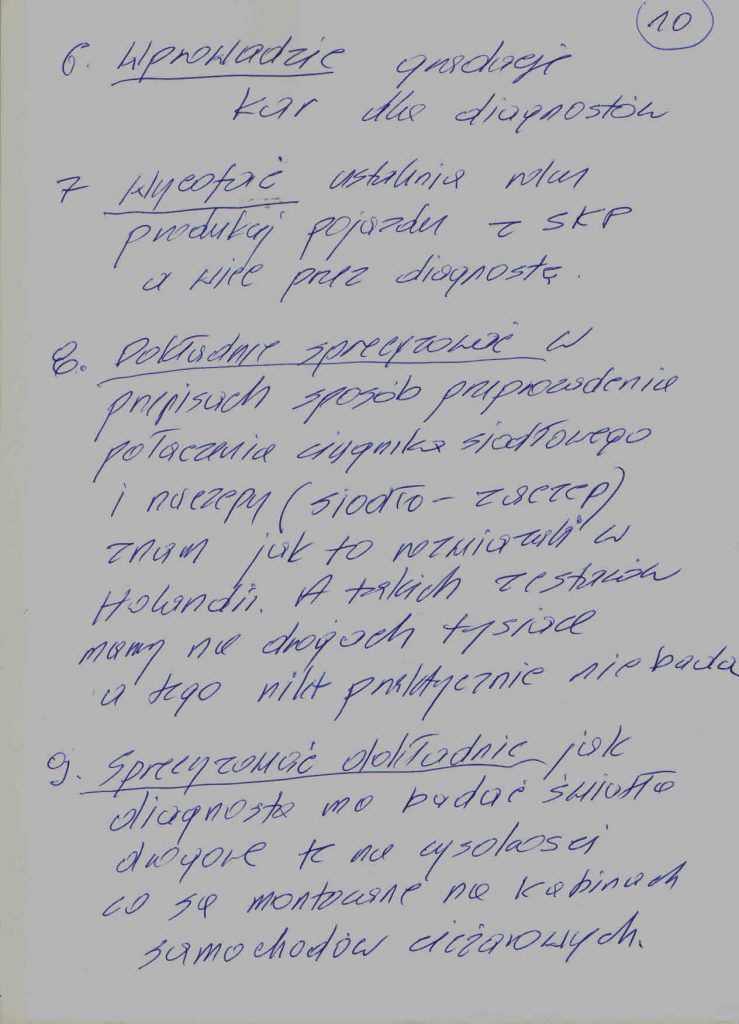 10
6. Wprowadzić gradację
kar dla diagnostów
7 Wycofać ustalnia roku
produkcj pojazdu z SKP
a więc przez diagnostę.
8. Dokładnie sprecyzować w
przepisach sposób przeprowadzenia
połączenia ciągnika siodłowego
i naczepy (siodło - zaczep)
znam jak to rozwiązali w
Holandii. A takich zestawów
mamy na drogach tysiące
a tego nikt praktycznie nie bada
9. Sprecyzować dokładnie jak
diagnosta ma badać światła
drogowe te na wysokości
co są montowane na kabinach
samochodów ciężarowych.